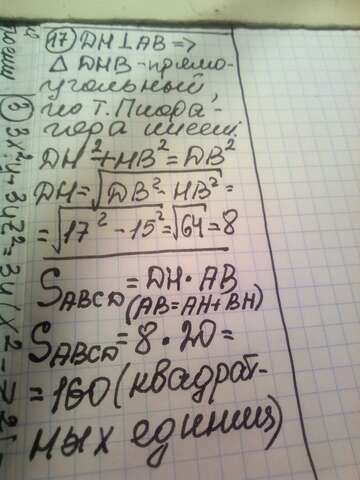 17) DH⊥AB =>
Δ DHB - прямо-
угольный,
по т. Пифа-
гора имеем:
DH²+HB²=DB²
DH=√DB²-HB²=
=√17²-15²=√64=8
S ABCD = DH·AB
(AB=AH+BH)
S ABCD = 8·20=
=160 (квадрат-
ных единиц)
3) 3x²y-3yz²=3y(x²-z²)